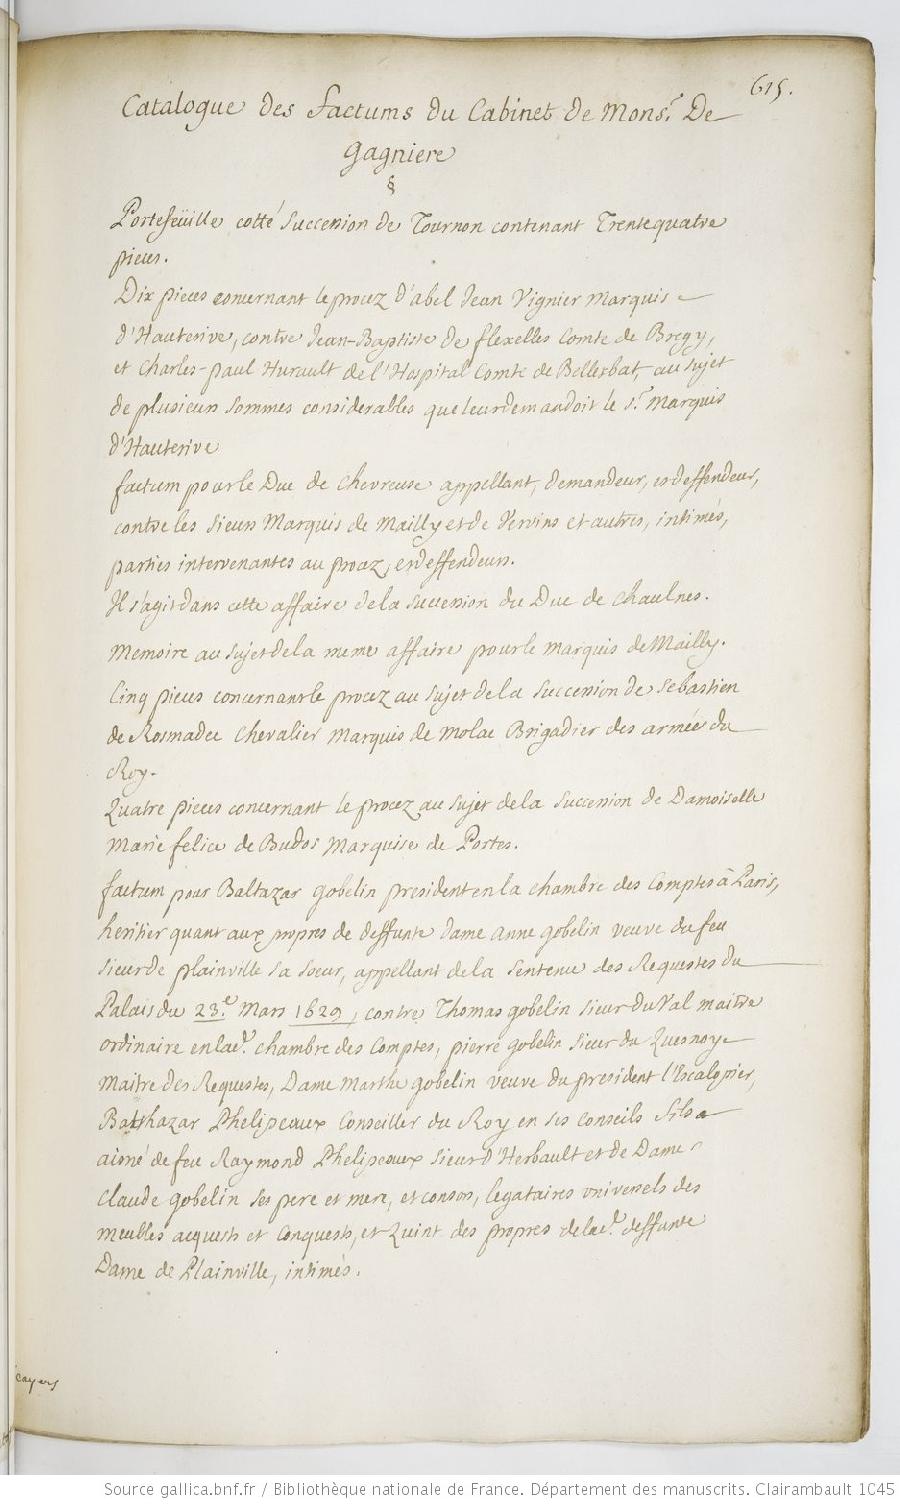 615.
Catalogue des factums du Cabinet de Mons.r De
Gagniere
§
Portefeüille cotté succession de Tournon contenant Trentequatre
pieces.
Dix pieces concernant le procez d'abel Jean Vignier Marquis
d'Hauterive, contre Jean-Baptiste de flexelles Comte de Bregy,
et Charles-paul Hurault de l'Hospital Comte de Bellesbat, au sujet
de plusieurs sommes considerables que leur demandoit le s.r Marquis
d'Hauterive
factum pour le Duc de Chevreuse appellant, demandeur, et deffendeur,
contre les sieurs Marquis de Mailly et de Vervins et autres, intimés,
parties intervenantes au procez, et deffendeurs.
Il s'agit dans cette affaire de la succession du Duc de Chaulnes.
Memoire au sujet de la meme affaire pour le marquis de Mailly.
Cinq pieces concernant le procez au sujet de la succession de Sebastien
de Rosmadec Chevalier Marquis de Molac Brigadier des armée du
Roy.
Quatre pieces concernant le procez au sujet de la succession de Damoiselle
Marie felice de Budos Marquise de Portes.
factum pour Baltazar gobelin president en la chambre des Comptes à Paris,
heritier quant aux propres de deffunte Dame Anne gobelin veuve du feu
sieur de plainville sa soeur, appellant de la sentence des Requestes du
Palais du 23.e Mars 1629, contre Thomas gobelin sieur du Val maitre
ordinaire en lad.e chambre des Comptes, pierre gobelin sieur du Quesnoy
Maitre des Requestes, Dame Marthe gobelin veuve du president l'Escalopier,
Balthazar Phelipeaux Conseiller du Roy en ses conseils fils
aisné de feu Raymond Phelipeaux sieur d'Herbault et de Dame
Claude gobelin ses pere et mere, et consors, legataires universels des
meubles acquests et Conquests, et Quint des propres de lad.e deffunte
Dame de Plainville, intimés.
cayers
Source gallica.bnf.fr / Bibliothèque nationale de France. Département des manuscrits. Clairambault 1045